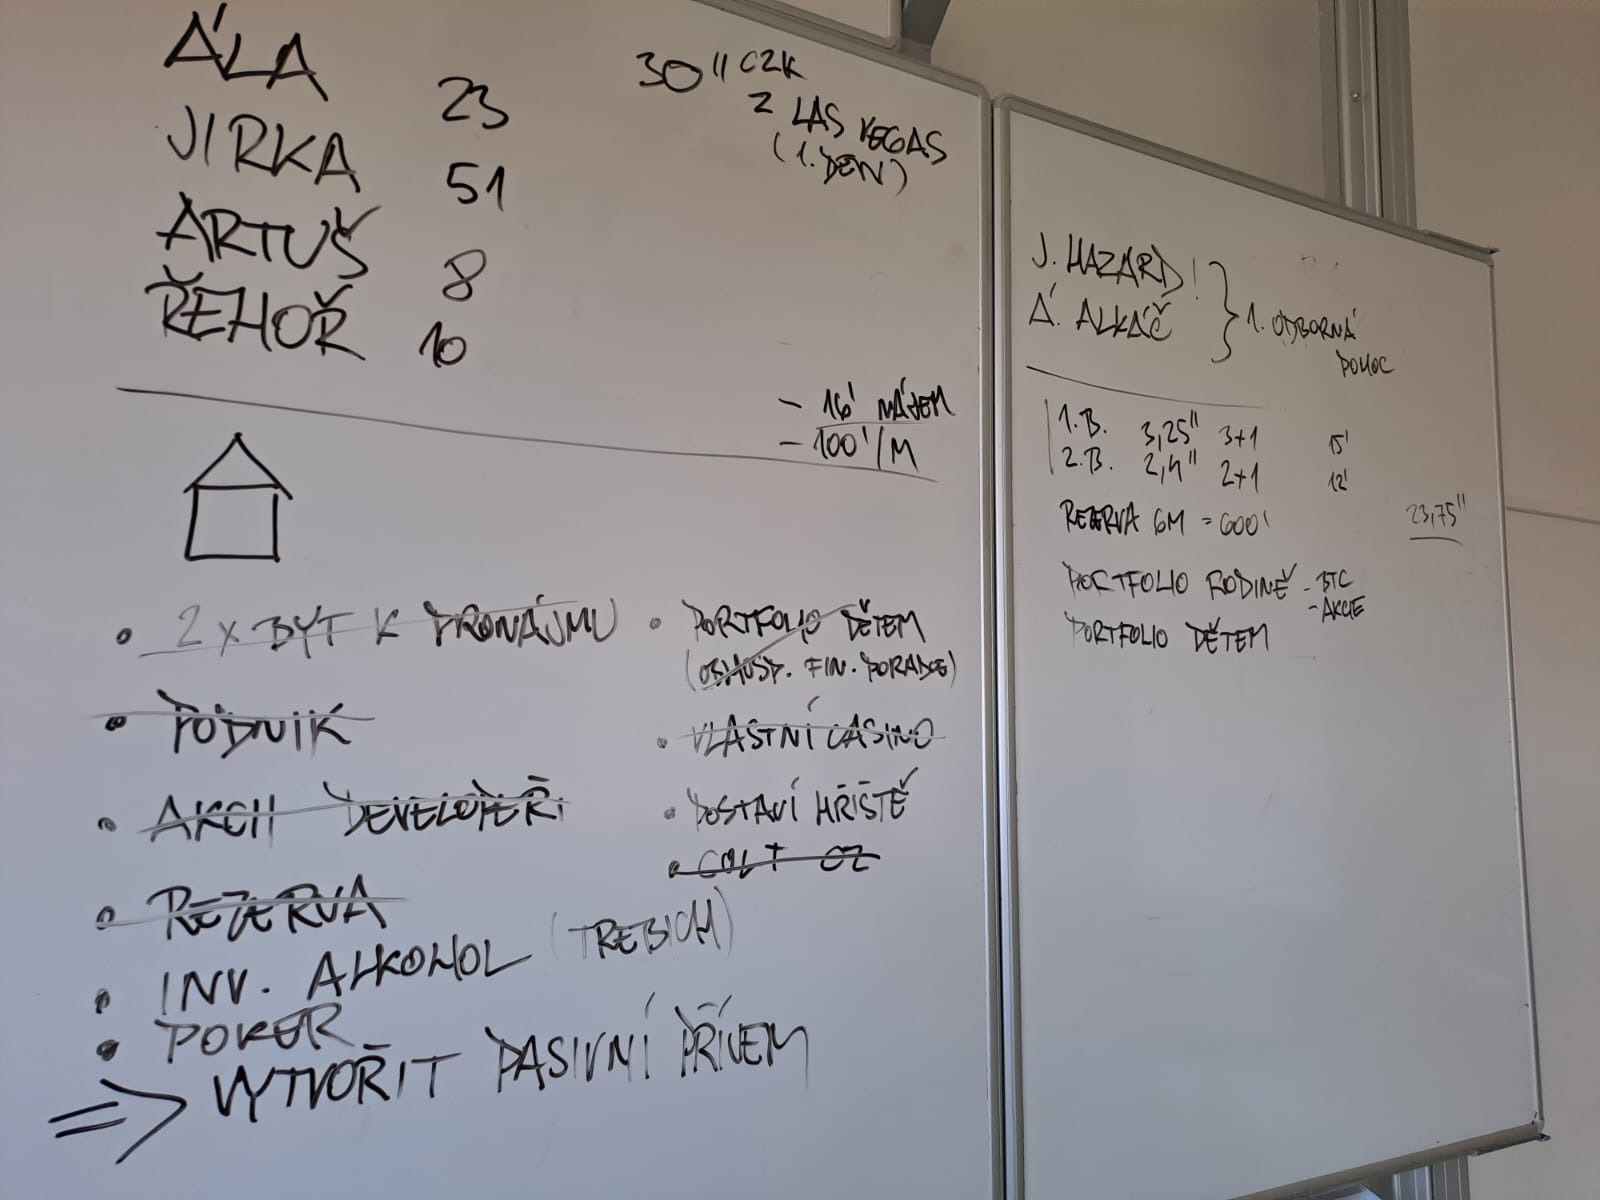 ÁLA 23
JIRKA 51
ARTUŠ 8
ŘEHOŘ 10
30'' CZK
Z LAS VEGAS
(1. DEN)
- 16' NÁJEM
- 100'/M
• 2 x BYT K PRONÁJMU
• PODNIK
• AKCII DEVELOPEŘI
• REZERVA
• INV. ALKOHOL (TREBICH)
• POKER
⇒ VYTVOŘIT PASIVNÍ PŘÍJEM
• PORTFOLIO DĚTEM
(OBHOSP. FIN. PORADCE)
• VLASTNÍ CASINO
• POSTAVÍ HŘIŠTĚ
• COLT CZ
J. HAZARD!
Á. ALKÁČ
1. ODBORNÁ
POMOC
1.B. 3,25'' 3+1 15'
2.B. 2,4'' 2+1 12'
REZERVA 6M = 600'
23,75''
PORTFOLIO RODINĚ - BTC
- AKCIE
PORTFOLIO DĚTEM